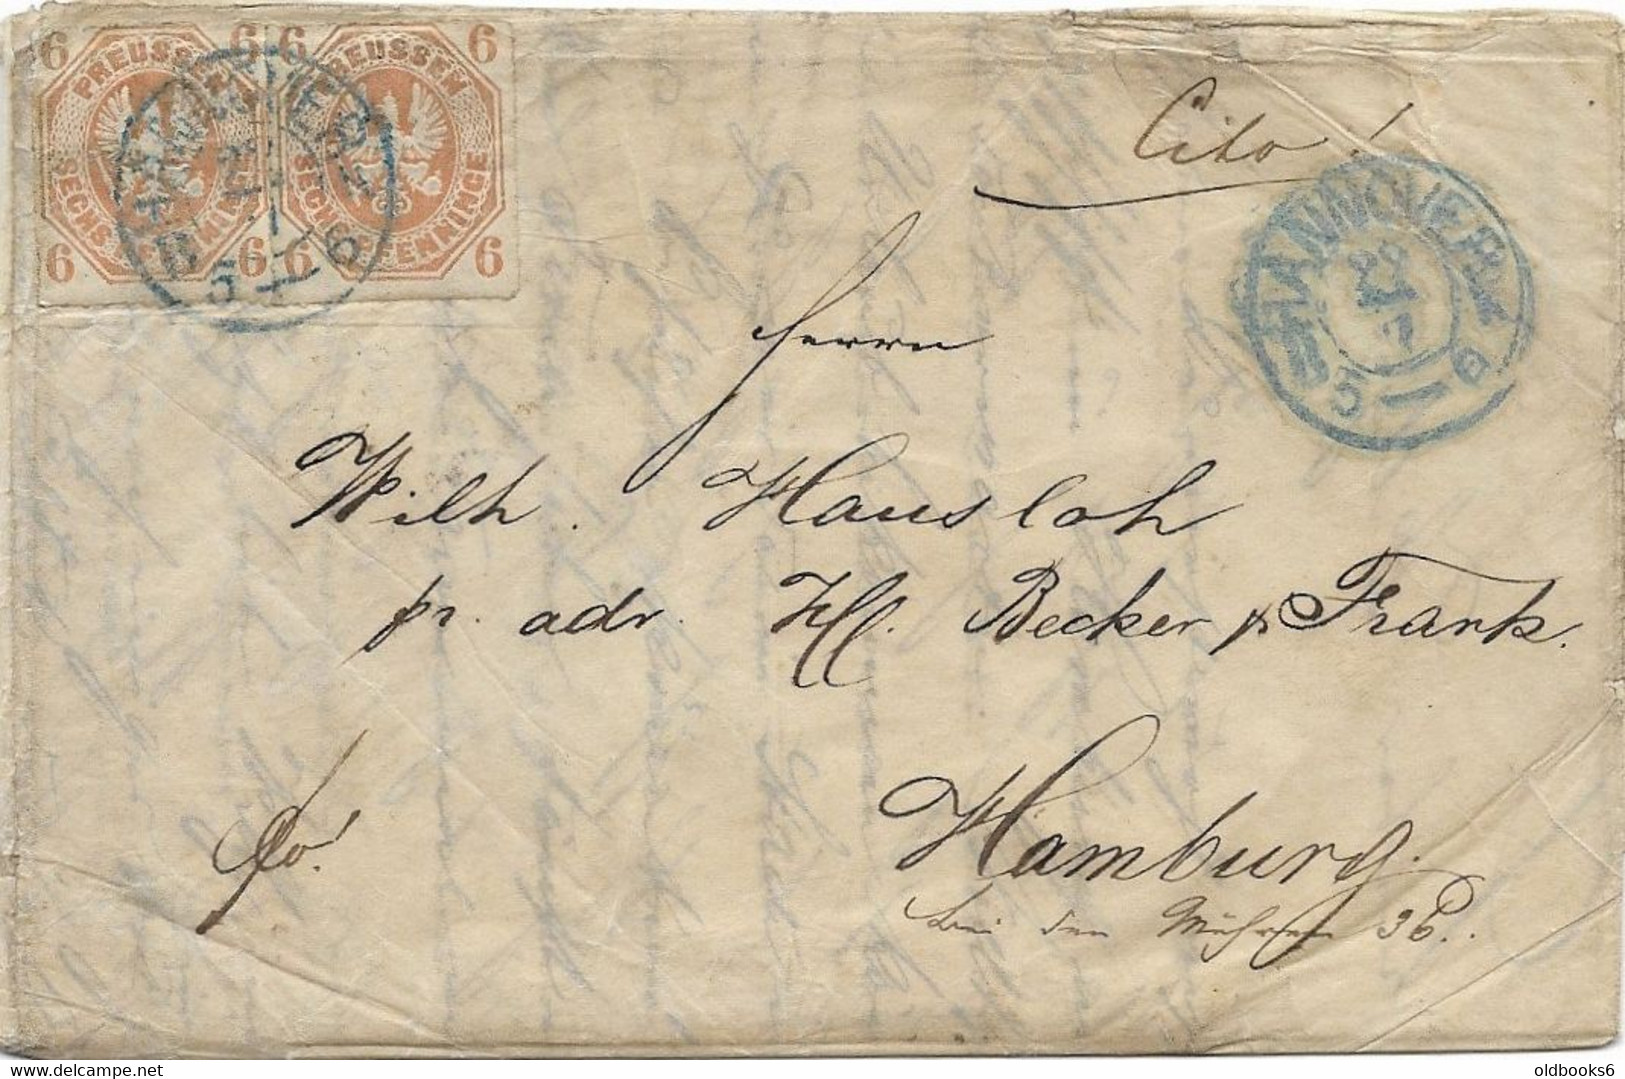 6 6 6 6
PREUSSEN PREUSSEN
SECHS PFENNINGE SECHS PFENNINGE
6 6 6 6
HANNOVER
5 — 6
Cito!
HANNOVER
22
7
5 — 6
Herrn
Wilh. Hausloh
pr. adr. HH. Becker & Frank.
fro!
Hamburg.
bei den Mühren 36.
oldbooks6